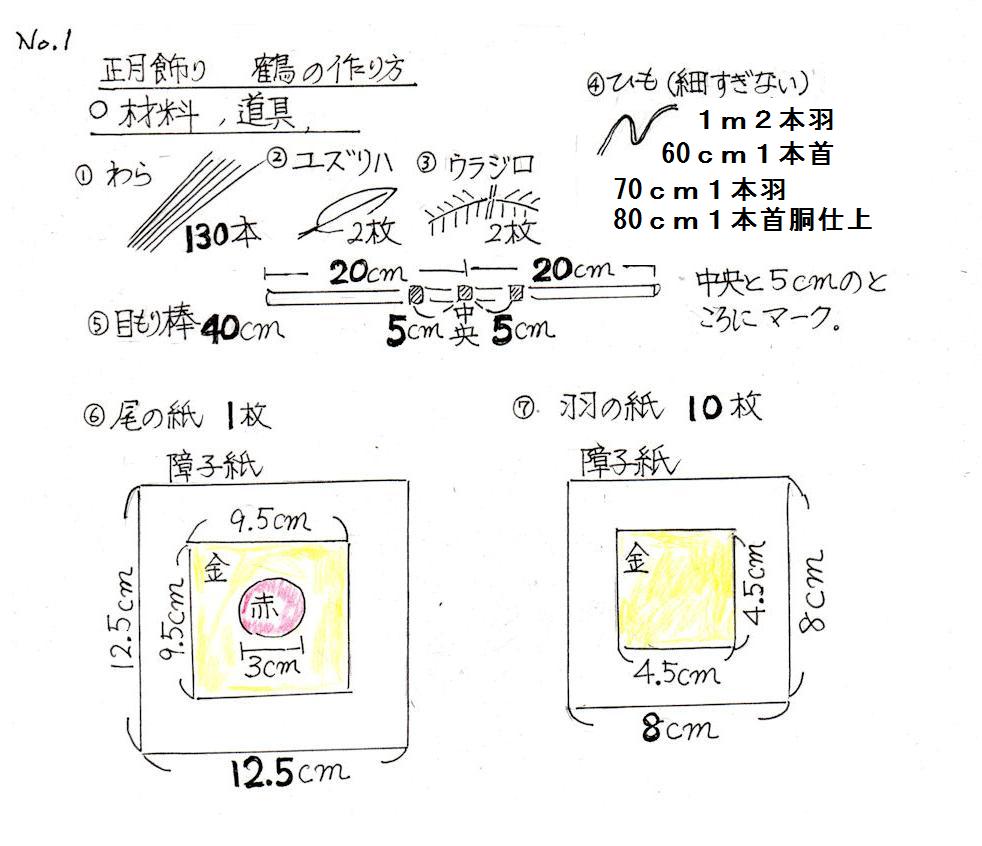 No.1
正月飾り 鶴の作り方
○材料、道具、
① わら
130本
② ユズリハ
2枚
③ ウラジロ
2枚
④ひも(細すぎない)
1m2本羽
60cm1本首
70cm1本羽
80cm1本首胴仕上
20cm 20cm
5cm 中央 5cm
⑤目もり棒40cm
中央と5cmのと
ころにマーク。
⑥尾の紙 1枚
障子紙
9.5cm
金
赤
3cm
9.5cm
12.5cm
12.5cm
⑦ 羽の紙 10枚
障子紙
金
4.5cm
4.5cm
8cm
8cm